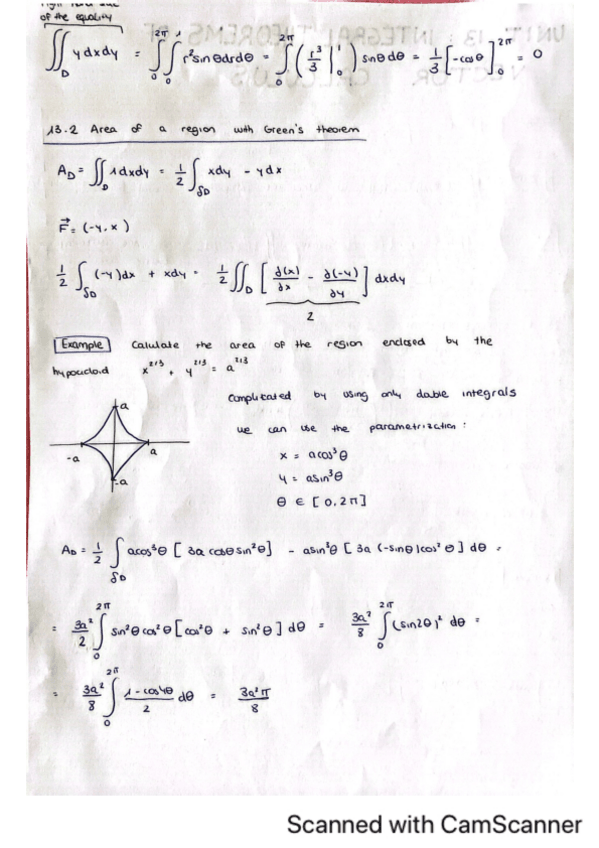 of the equality
∬_D y dxdy = ∫_0^{2π} ∫_0^1 r² sin θ dr dθ = ∫_0^{2π} ( r³/3 |_0^1 ) sin θ dθ = 1/3 [-cos θ]_0^{2π} = 0
13.2 Area of a region with Green's theorem
A_D = ∬_D 1 dxdy = 1/2 ∫_{δD} xdy - ydx
F⃗ = (-y, x)
1/2 ∫_{δD} (-y)dx + xdy = 1/2 ∬_D [ ∂(x)/∂x - ∂(-y)/∂y ] dxdy
2
Example Calculate the area of the region enclosed by the
hypocicloid x^{2/3} + y^{2/3} = a^{2/3}
Complicated by using only double integrals
we can use the parametrization :
x = acos³θ
y = asin³θ
θ ∈ [0, 2π]
a
-a a
-a
A_D = 1/2 ∫_{δD} acos³θ [ 3a cosθ sin²θ] - asin³θ [ 3a (-sinθ)cos²θ ] dθ =
= 3a²/2 ∫_0^{2π} sin²θ cos²θ [cos²θ + sin²θ] dθ = 3a²/8 ∫_0^{2π} (sin2θ)² dθ =
= 3a²/8 ∫_0^{2π} (1 - cos4θ)/2 dθ = 3a²π/8
Scanned with CamScanner